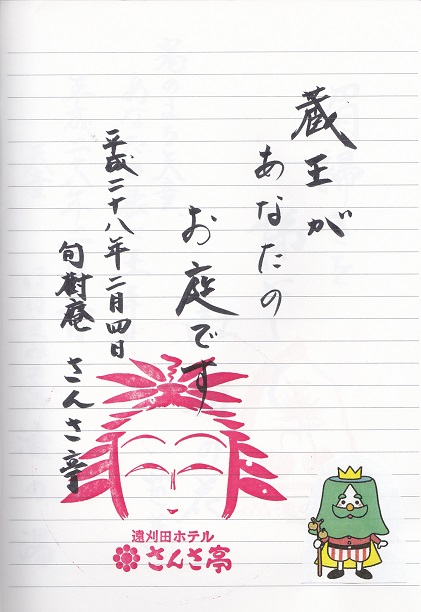 蔵王が
あなたの
お庭です
平成二十八年二月四日
旬樹庵 さんさ亭
遠刈田ホテル
さんさ亭